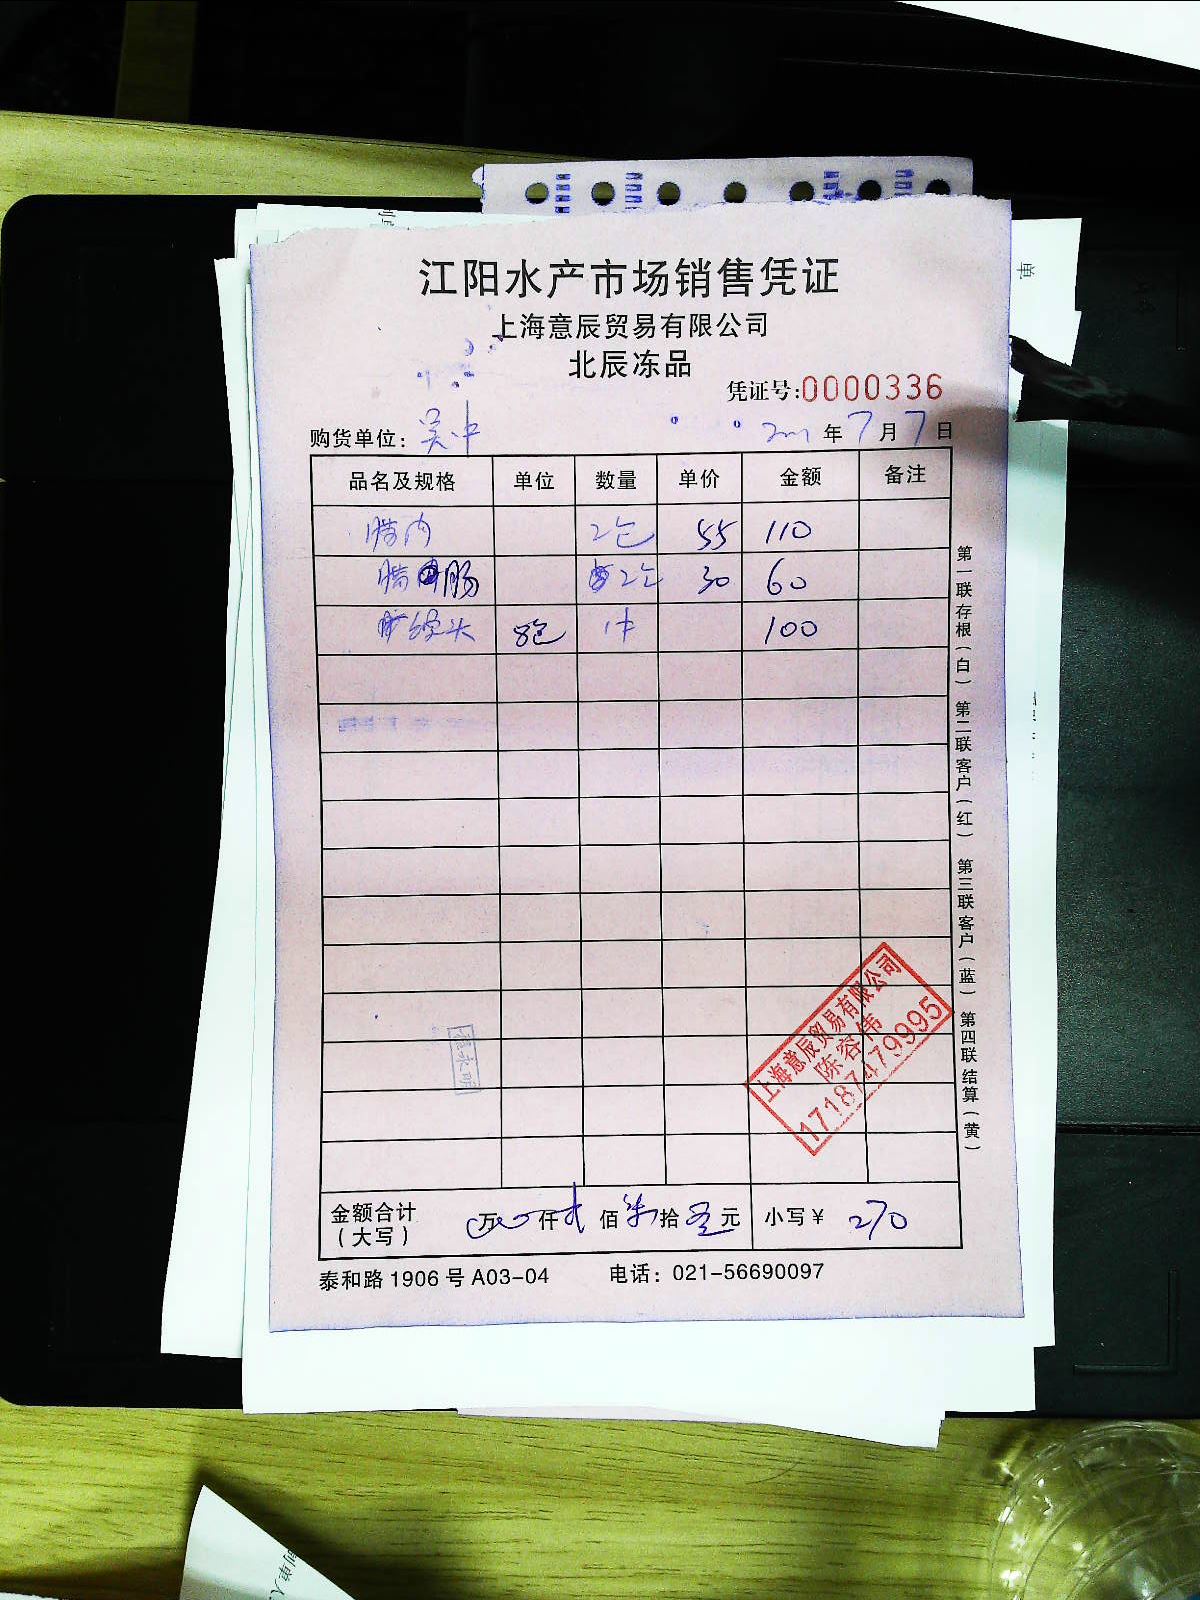 江阳水产市场销售凭证
上海意辰贸易有限公司
北辰冻品
凭证号:0000336
购货单位: 吴中 年7月7日
品名及规格 单位 数量 单价 金额 备注
腊肉 2包 55 110
腊肠 2包 30 60
馒头 8包 1件 100
上海意辰贸易有限公司
陈容伟
17187479995
金额合计(大写) 万 仟 佰 柒拾 元 小写¥ 270
泰和路1906号A03-04 电话:021-56690097
第一联存根(白) 第二联客户(红) 第三联客户(蓝) 第四联结算(黄)
单